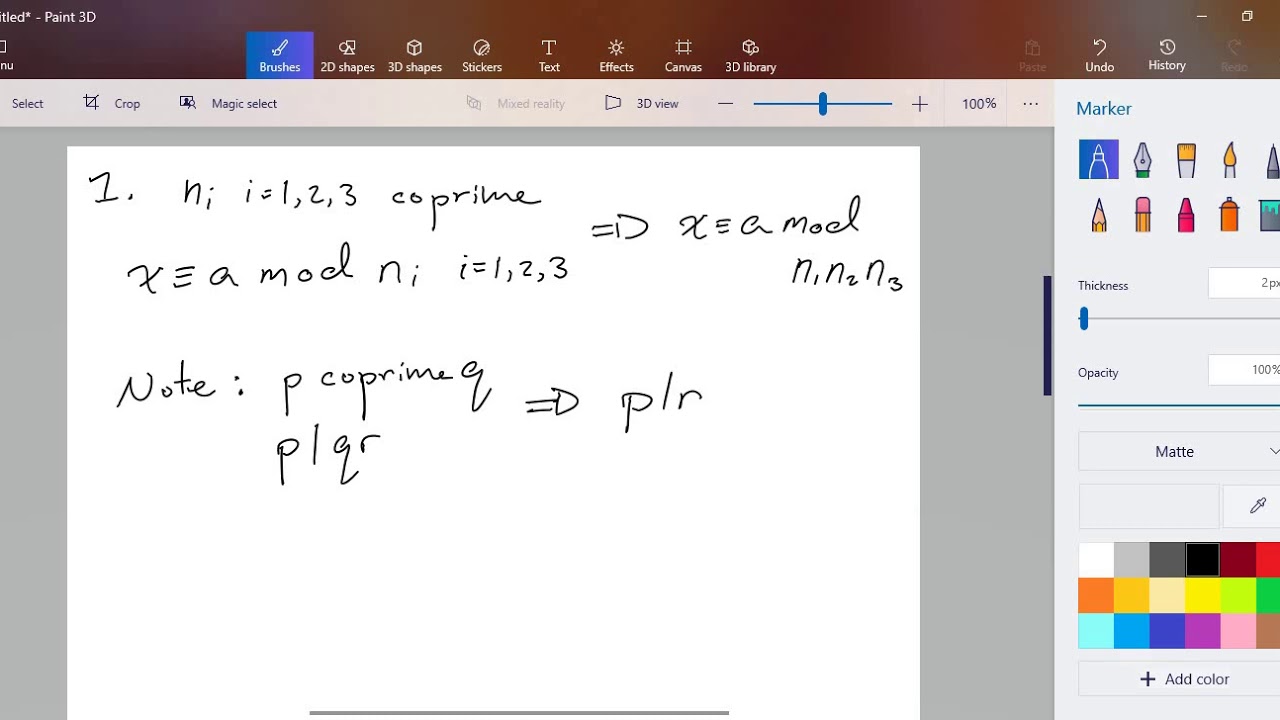 itled* - Paint 3D
nu
Brushes
2D shapes
3D shapes
Stickers
Text
Effects
Canvas
3D library
Paste
Undo
History
Redo
Select
Crop
Magic select
Mixed reality
3D view
100%
1. nᵢ i=1,2,3 coprime
x≡a mod nᵢ i=1,2,3
⇒ x≡a mod
n₁n₂n₃
Note: p coprime q
p/qr
⇒ p/r
Marker
Thickness
2px
Opacity
100%
Matte
Add color